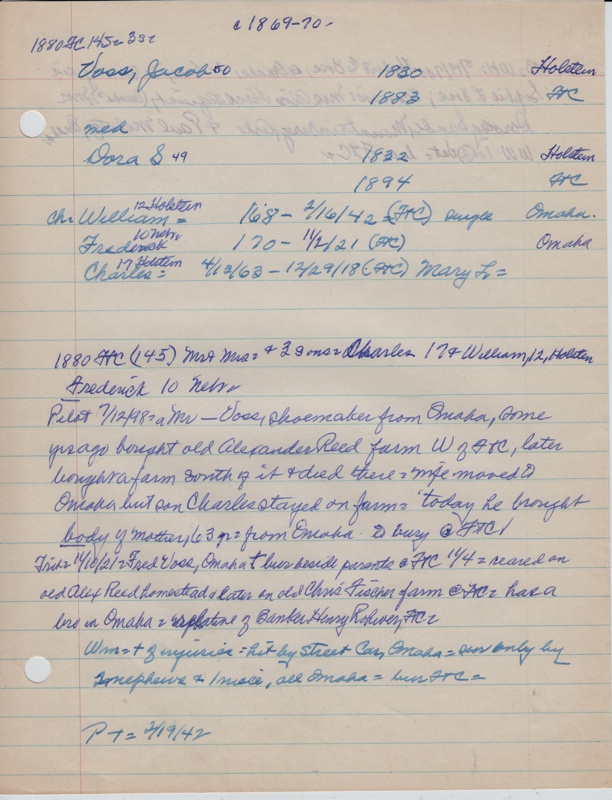 c 1869-70-
1880 FC 145 = 332
Voss, Jacob 50 1830 Holstein
1883 FC
med
Dora S 49 1832 Holstein
1894 FC
ch: William = 12 Holstein 168 - 2/16/42 = (FC) single Omaha.
Frederick 10 Nebr 170 - 11/2/21 (FC) Omaha
Charles = 17 Holstein 4/13/63 - 12/29/18 (FC) Mary L =
1880 FC (145) Mr & Mrs = + 3 sons = Charles 17 & William, 12, Holstein
Frederick 10 Nebr
Pilot 7/12/98 = a Mr - Voss, shoemaker from Omaha, some
yrs ago bought old Alexander Reed farm W of FC, later
bought a farm south of it & died there = wife moved to
Omaha but son Charles stayed on farm = today he brought
body of mother, 63 yr = from Omaha to bury @ FC
Trib = 11/10/21 = Fred Voss, Omaha + bur beside parents @ FC 11/4 = reared on
old Alex Reed homestead & later on old Chris Fischer farm @ FC = has a
bro in Omaha = of Banker Henry Rohwer, FC =
Wm = + of injuries = hit by street car, Omaha = sur only by
nephews & 1 niece, all Omaha = bur FC =
P T = 2/19/42